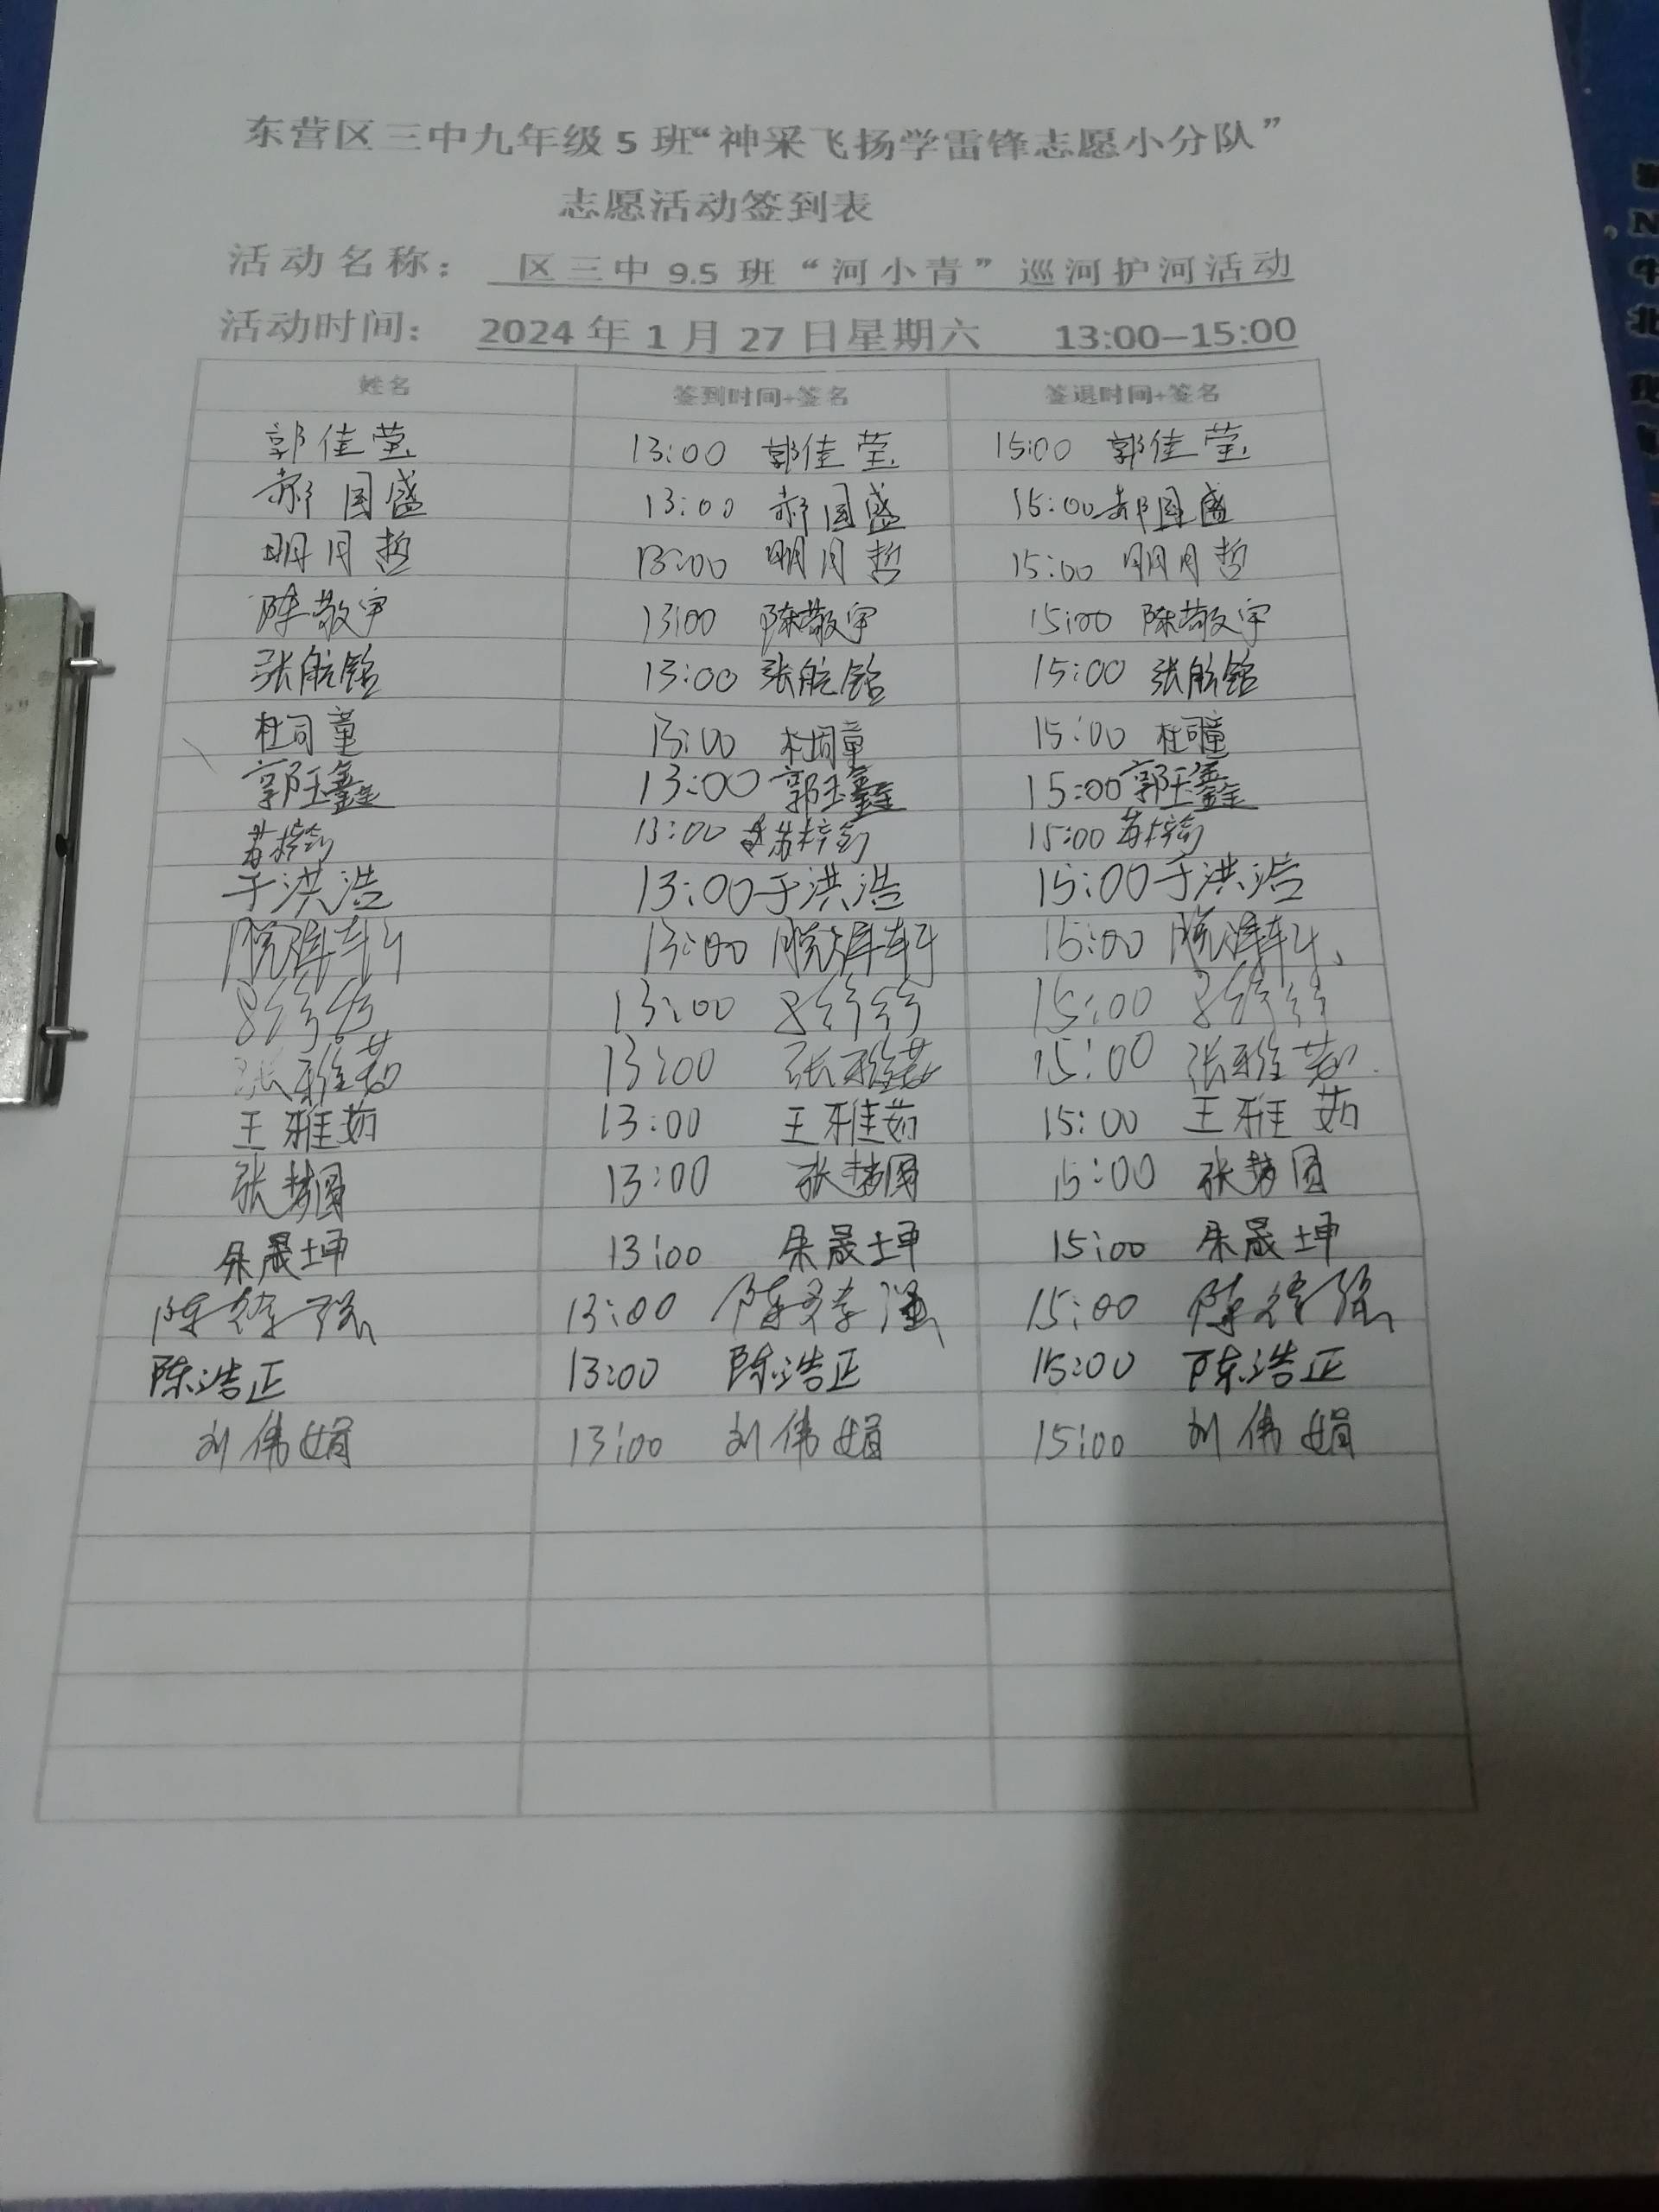 东营区三中九年级5班“神采飞扬学雷锋志愿小分队”
志愿活动签到表
活动名称： 区三中9.5班“河小青”巡河护河活动
活动时间： 2024年1月27日星期六 13:00—15:00
姓名 签到时间+签名 签退时间+签名
郭佳莹 13:00 郭佳莹 15:00 郭佳莹
郝国盛 13:00 郝国盛 15:00 郝国盛
明月哲 13:00 明月哲 15:00 明月哲
陈敬宇 13:00 陈敬宇 15:00 陈敬宇
张航铭 13:00 张航铭 15:00 张航铭
杜司童 13:00 杜司童 15:00 杜司童
郭玉鑫 13:00 郭玉鑫 15:00 郭玉鑫
苏梓钧 13:00 苏梓钧 15:00 苏梓钧
于洪浩 13:00 于洪浩 15:00 于洪浩
13:00 15:00
13:00 15:00
张雅茹 13:00 张雅茹 15:00 张雅茹
王雅茹 13:00 王雅茹 15:00 王雅茹
张梦圆 13:00 张梦圆 15:00 张梦圆
朱晟坤 13:00 朱晟坤 15:00 朱晟坤
陈 13:00 陈 15:00 陈
陈浩正 13:00 陈浩正 15:00 陈浩正
刘伟娟 13:00 刘伟娟 15:00 刘伟娟